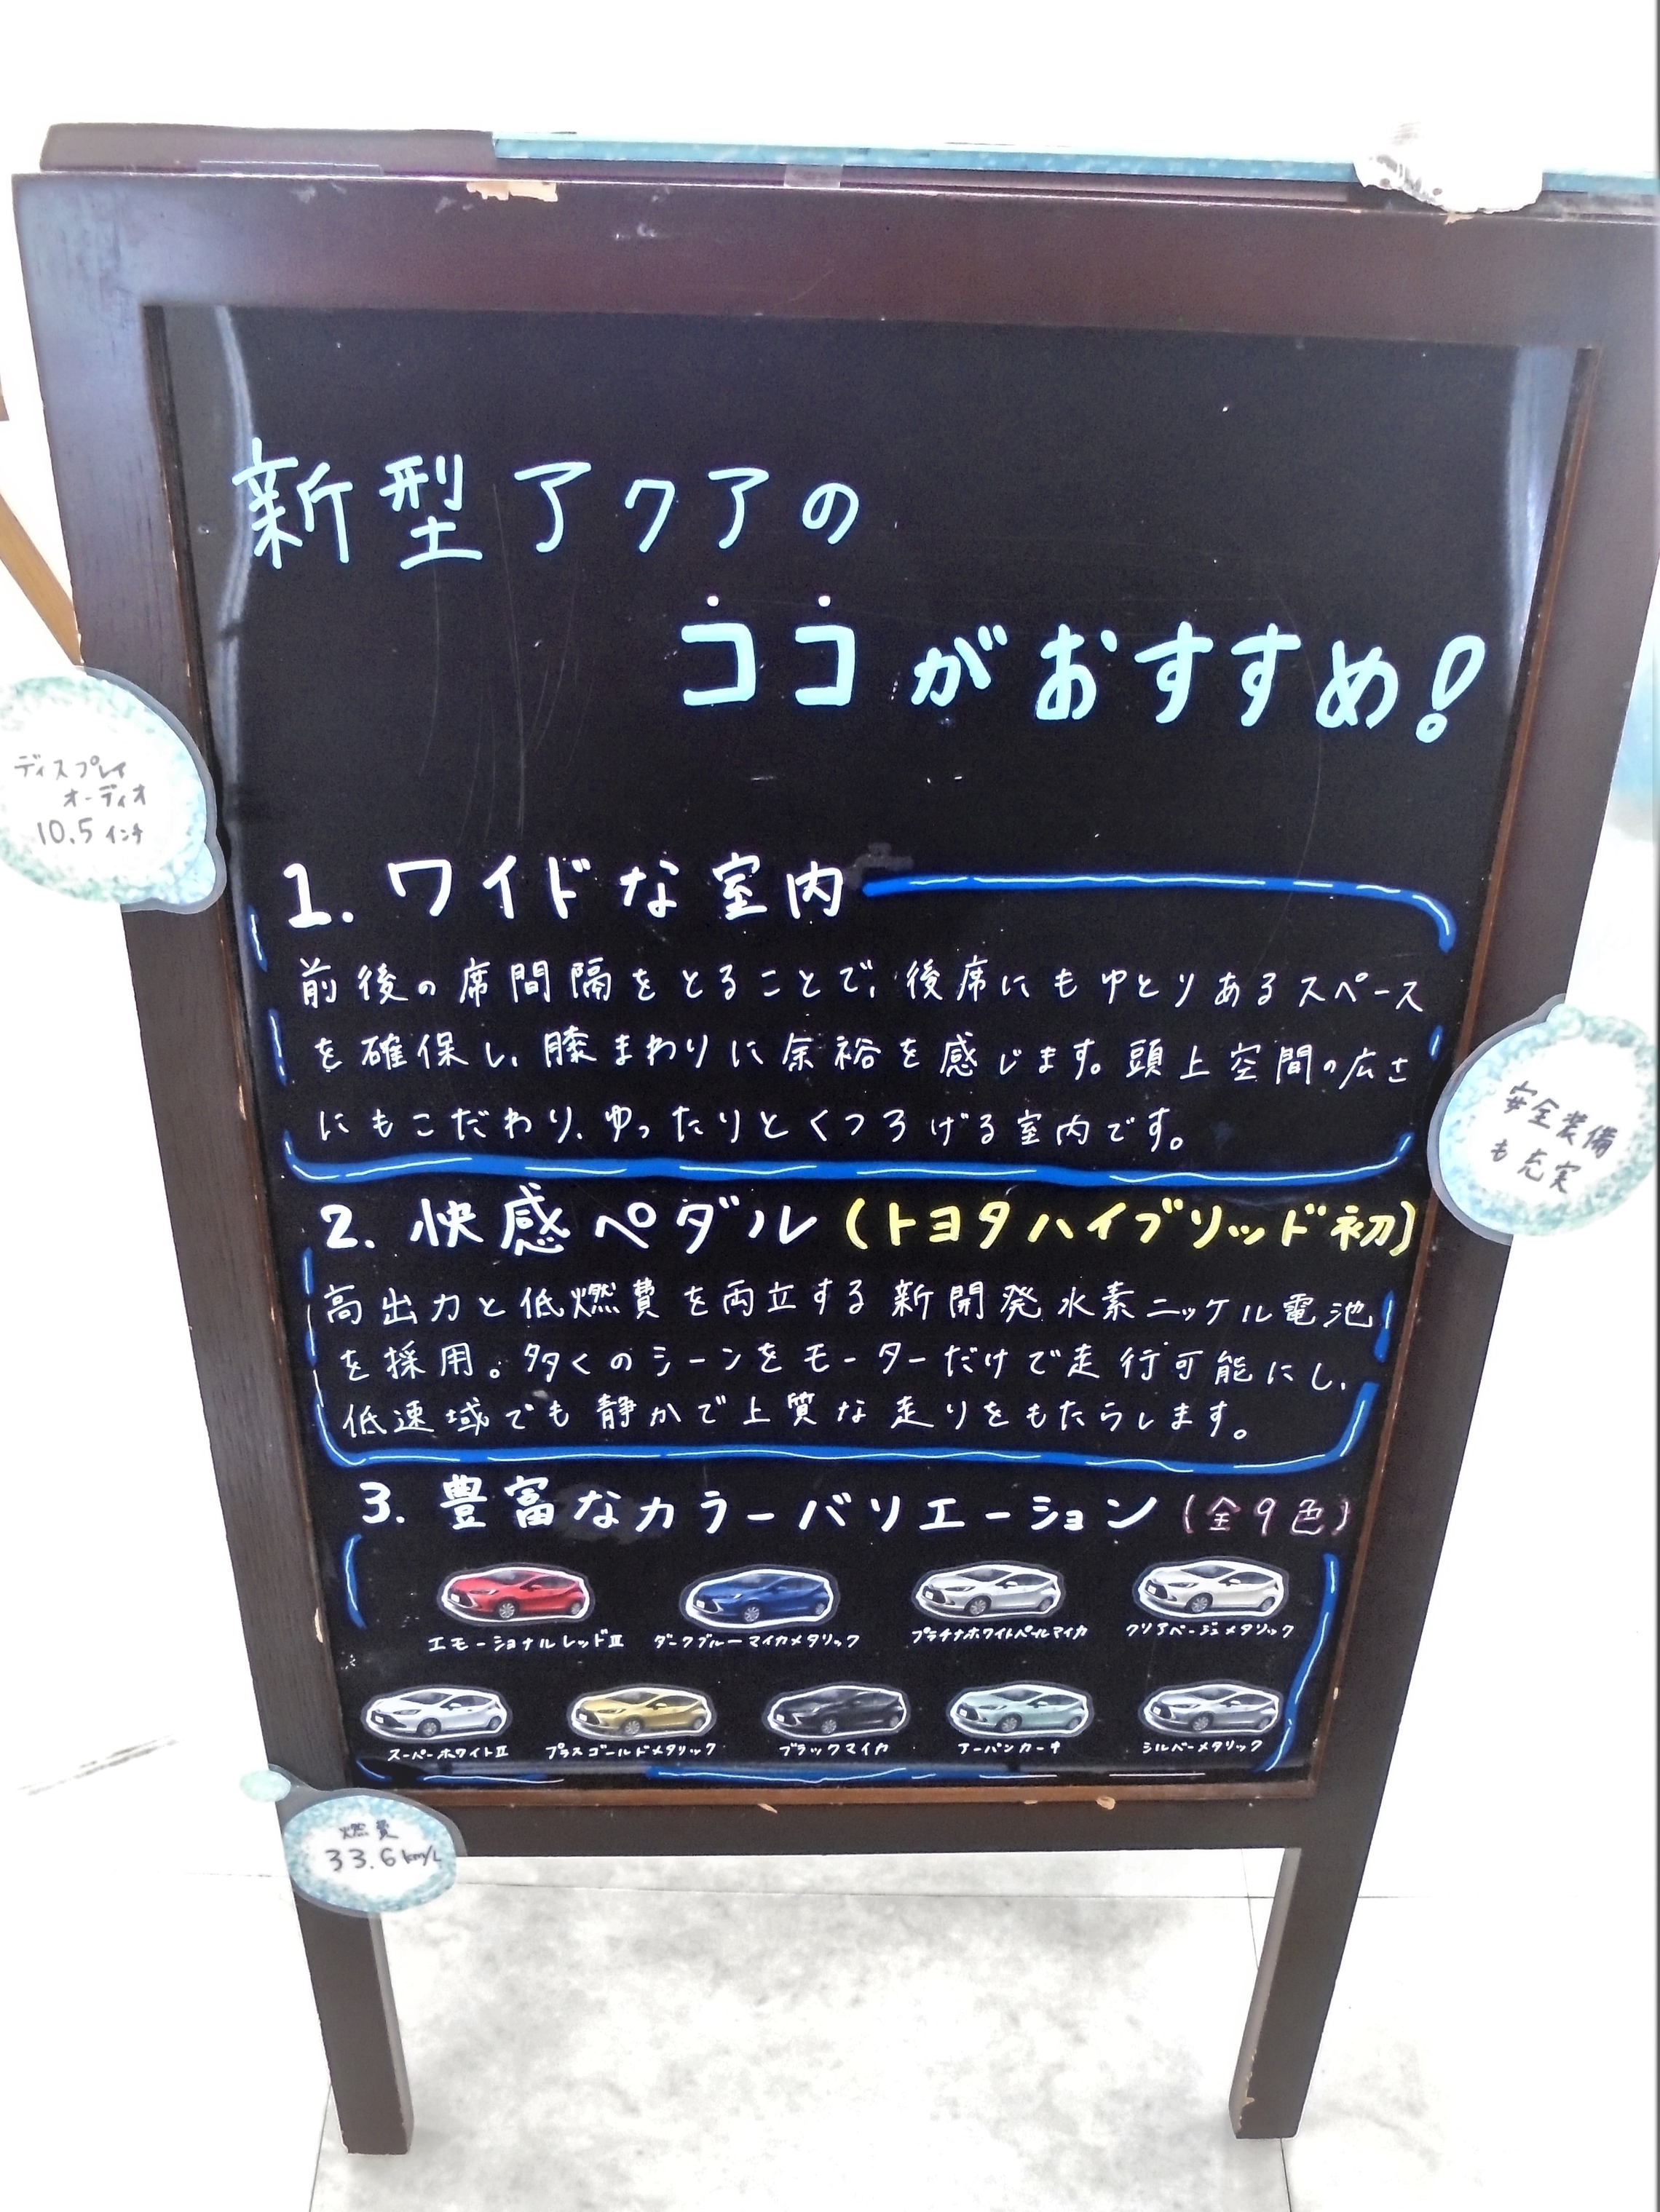 新型アクアの
ココがおすすめ!
ディスプレイ
オーディオ
10.5インチ
1. ワイドな室内
前後の席間隔をとることで、後席にもゆとりあるスペース
を確保し、膝まわりに余裕を感じます。頭上空間の広さ
にもこだわり、ゆったりとくつろげる室内です。
安全装備
も充実
2. 快感ペダル (トヨタハイブリッド初)
高出力と低燃費を両立する新開発水素ニッケル電池
を採用。多くのシーンをモーターだけで走行可能にし、
低速域でも静かで上質な走りをもたらします。
3. 豊富なカラーバリエーション (全9色)
エモーショナルレッドⅡ ダークブルーマイカメタリック プラチナホワイトパールマイカ クリアベージュメタリック
スーパーホワイトⅡ ブラスゴールドメタリック ブラックマイカ アーバンカーキ シルバーメタリック
燃費
33.6km/L